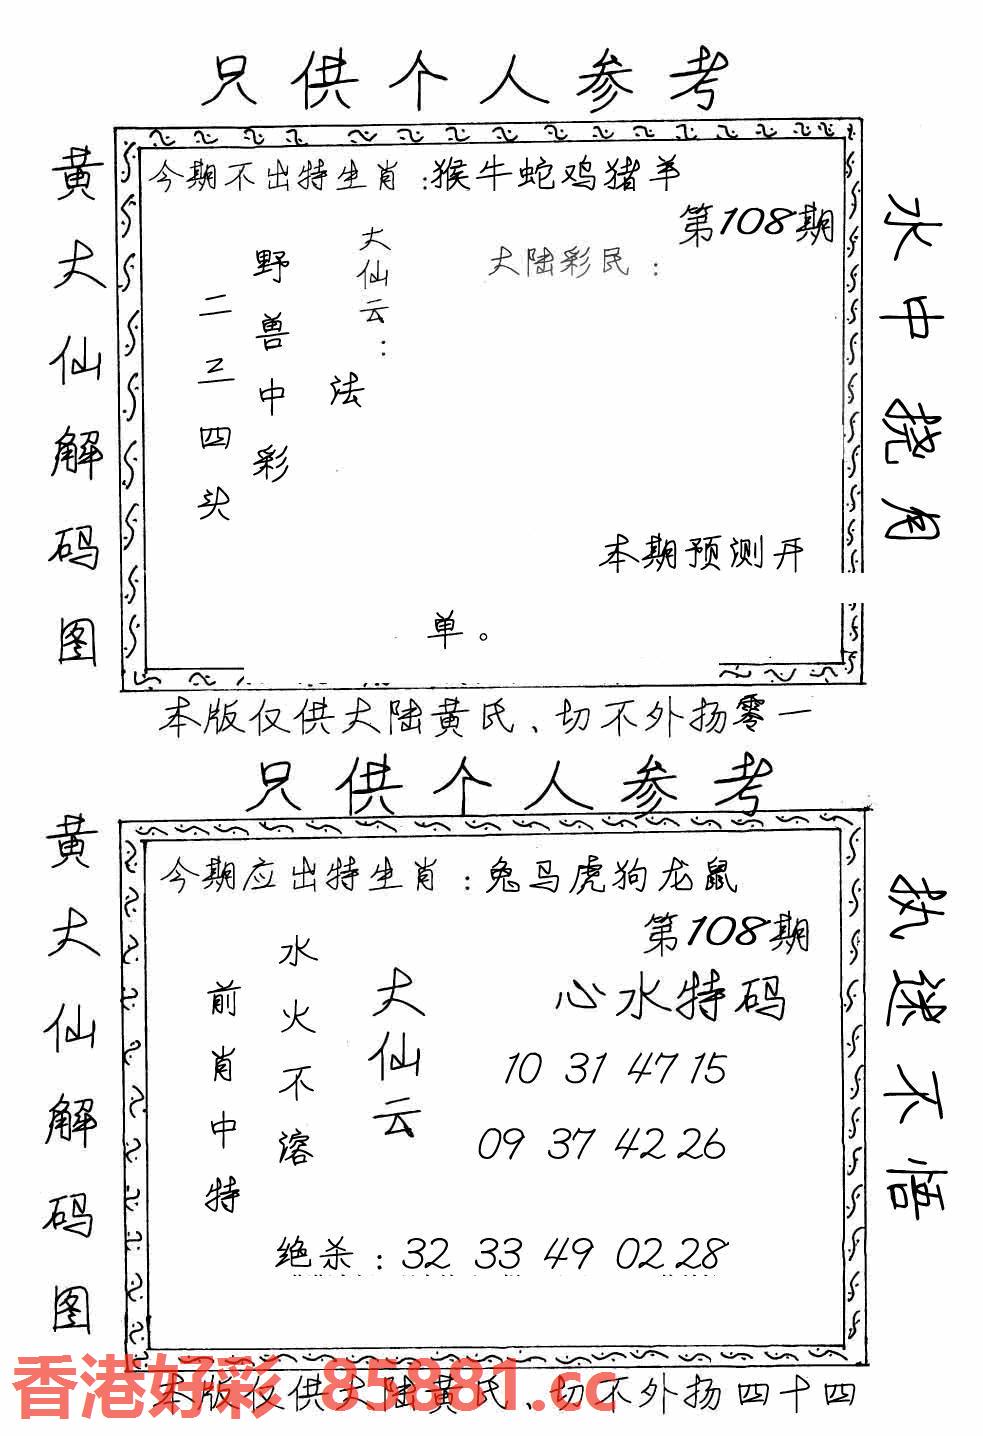 只供个人参考
黄大仙解码图
今期不出特生肖：猴牛蛇鸡猪羊
第108期
大陆彩民：
大仙云：
法
野兽中彩
二三四头
本期预测开
单。
水中捞月
本版仅供大陆黄氏、切不外扬零一
只供个人参考
黄大仙解码图
今期应出特生肖：兔马虎狗龙鼠
第108期
心水特码
10 31 47 15
09 37 42 26
大仙云
水火不溶
前肖中特
绝杀：32 33 49 02 28
执迷不悟
香港好彩 85881.cc
本版仅供大陆黄氏、切不外扬四十四